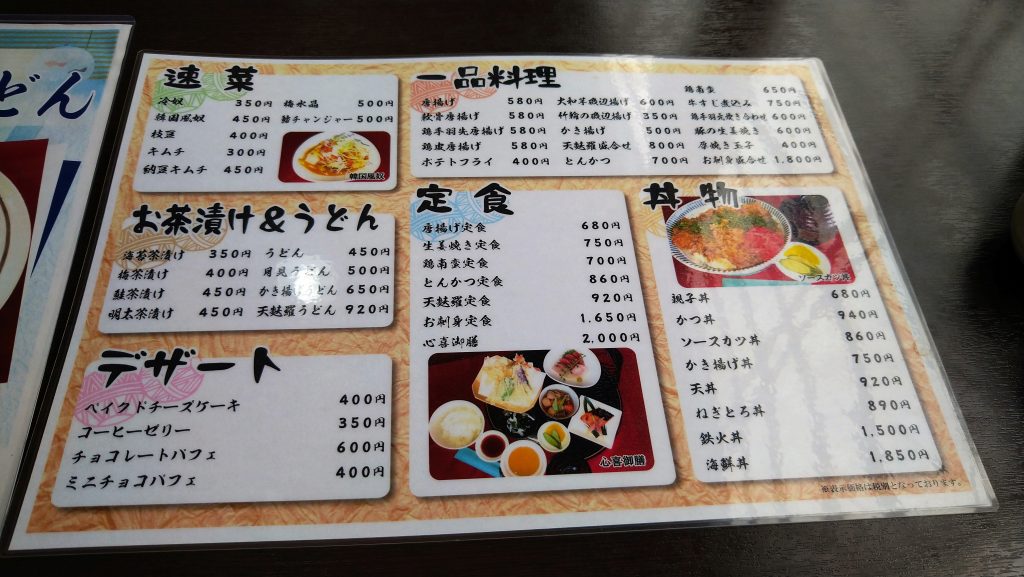 どん
速菜
冷奴 350円 梅水晶 500円
韓国風奴 450円 鱈チャンジャー 500円
枝豆 400円
キムチ 300円
納豆キムチ 450円
韓国風奴
一品料理
唐揚げ 580円 大和芋磯辺揚げ 600円 鶏南蛮 650円
軟骨唐揚げ 580円 竹輪の磯辺揚げ 350円 牛すじ煮込み 750円
鶏手羽先唐揚げ 580円 かき揚げ 500円 鶏手羽先炊き合わせ 600円
鶏皮唐揚げ 580円 天麩羅盛合せ 800円 豚の生姜焼き 600円
ポテトフライ 400円 とんかつ 700円 厚焼き玉子 400円
お刺身盛合せ 1,800円
お茶漬け&うどん
海苔茶漬け 350円 うどん 450円
梅茶漬け 400円 月見うどん 500円
鮭茶漬け 450円 かき揚げうどん 650円
明太茶漬け 450円 天麩羅うどん 920円
デザート
ベイクドチーズケーキ 400円
コーヒーゼリー 350円
チョコレートパフェ 600円
ミニチョコパフェ 400円
定食
唐揚げ定食 680円
生姜焼き定食 750円
鶏南蛮定食 700円
とんかつ定食 860円
天麩羅定食 920円
お刺身定食 1,650円
心喜御膳 2,000円
心喜御膳
丼物
ソースカツ丼
親子丼 680円
かつ丼 940円
ソースカツ丼 860円
かき揚げ丼 750円
天丼 920円
ねぎとろ丼 890円
鉄火丼 1,500円
海鮮丼 1,850円
※表示価格は税別となっております。